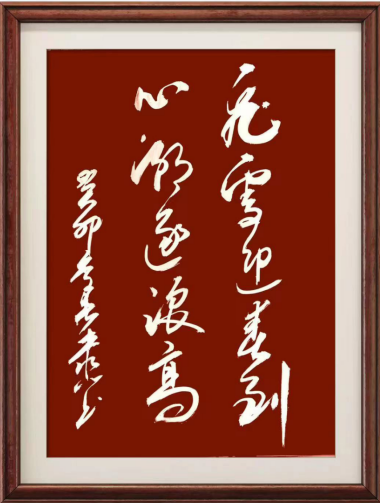 飞雪迎春到
心潮逐浪高
癸卯